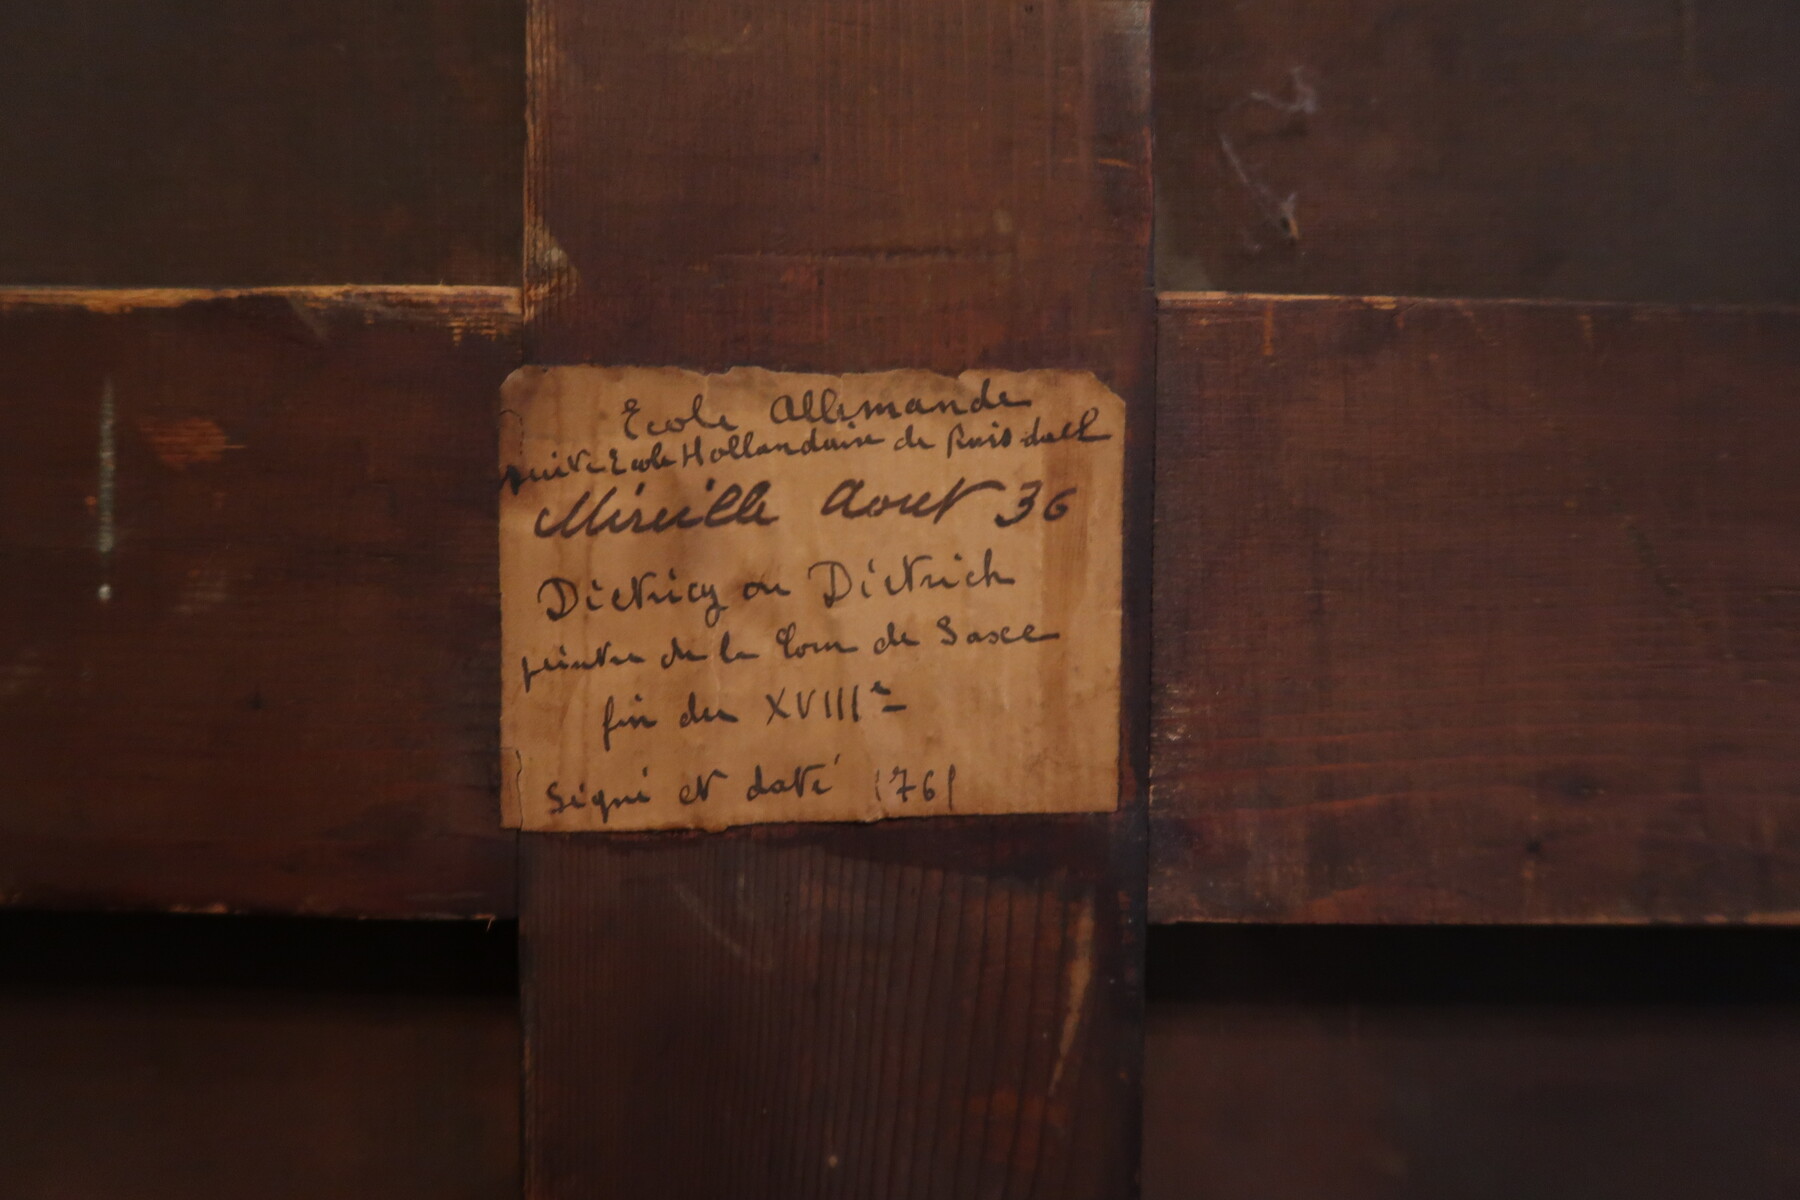 Ecole Allemande
suite Ecole Hollandaise de Ruisdael
Mireille Aout 36
Dietricy ou Dietrich
peintre de la Cour de Saxe
fin du XVIIIe
Signé et daté 1761